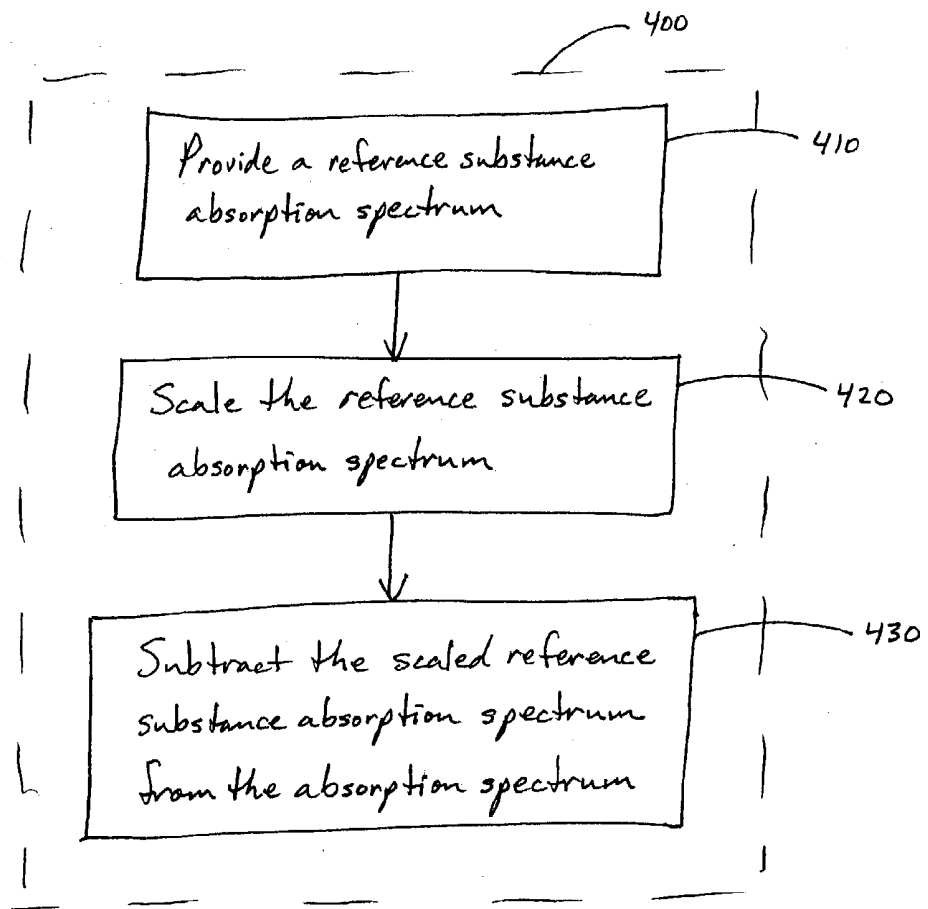 400
Provide a reference substance
absorption spectrum
410
Scale the reference substance
absorption spectrum
420
Subtract the scaled reference
substance absorption spectrum
from the absorption spectrum
430